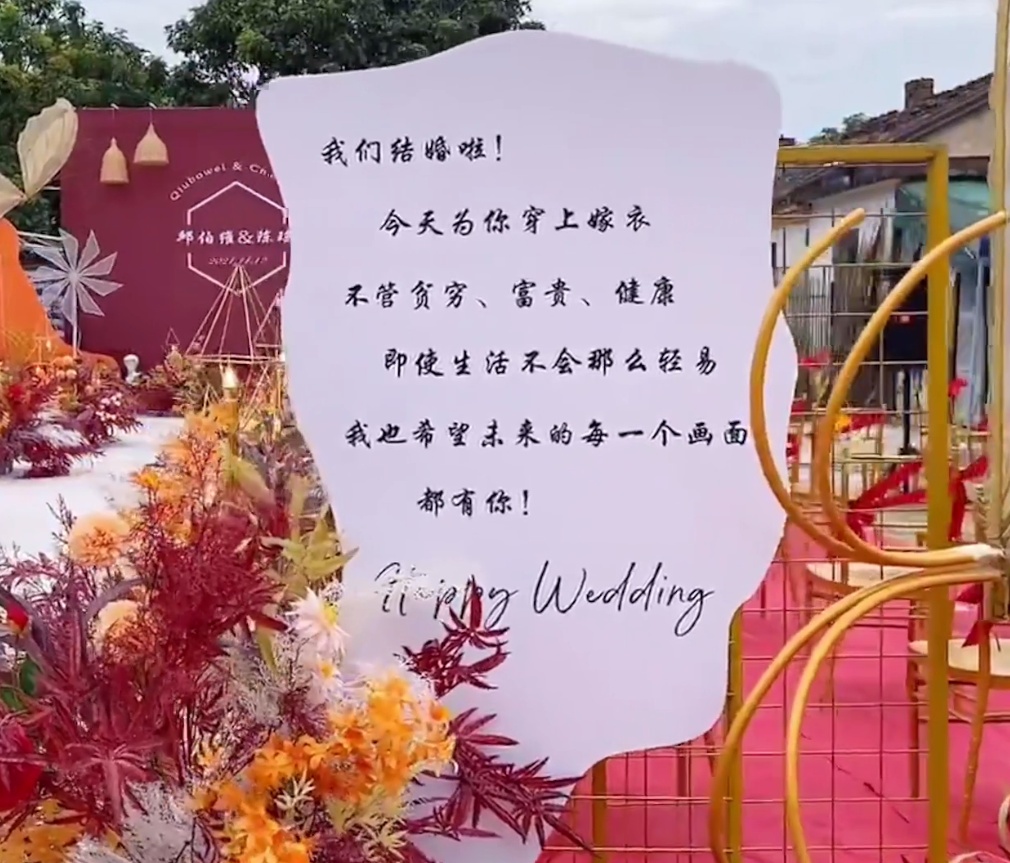 我们结婚啦！
今天为你穿上嫁衣
不管贫穷、富贵、健康
即使生活不会那么轻易
我也希望未来的每一个画面
都有你！
Happy Wedding
Qiubowei &
邱伯维&陈